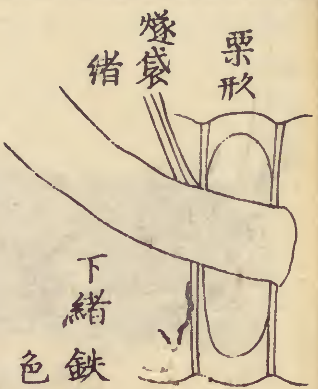 栗形
燧袋
緒
下緒
鉄
色